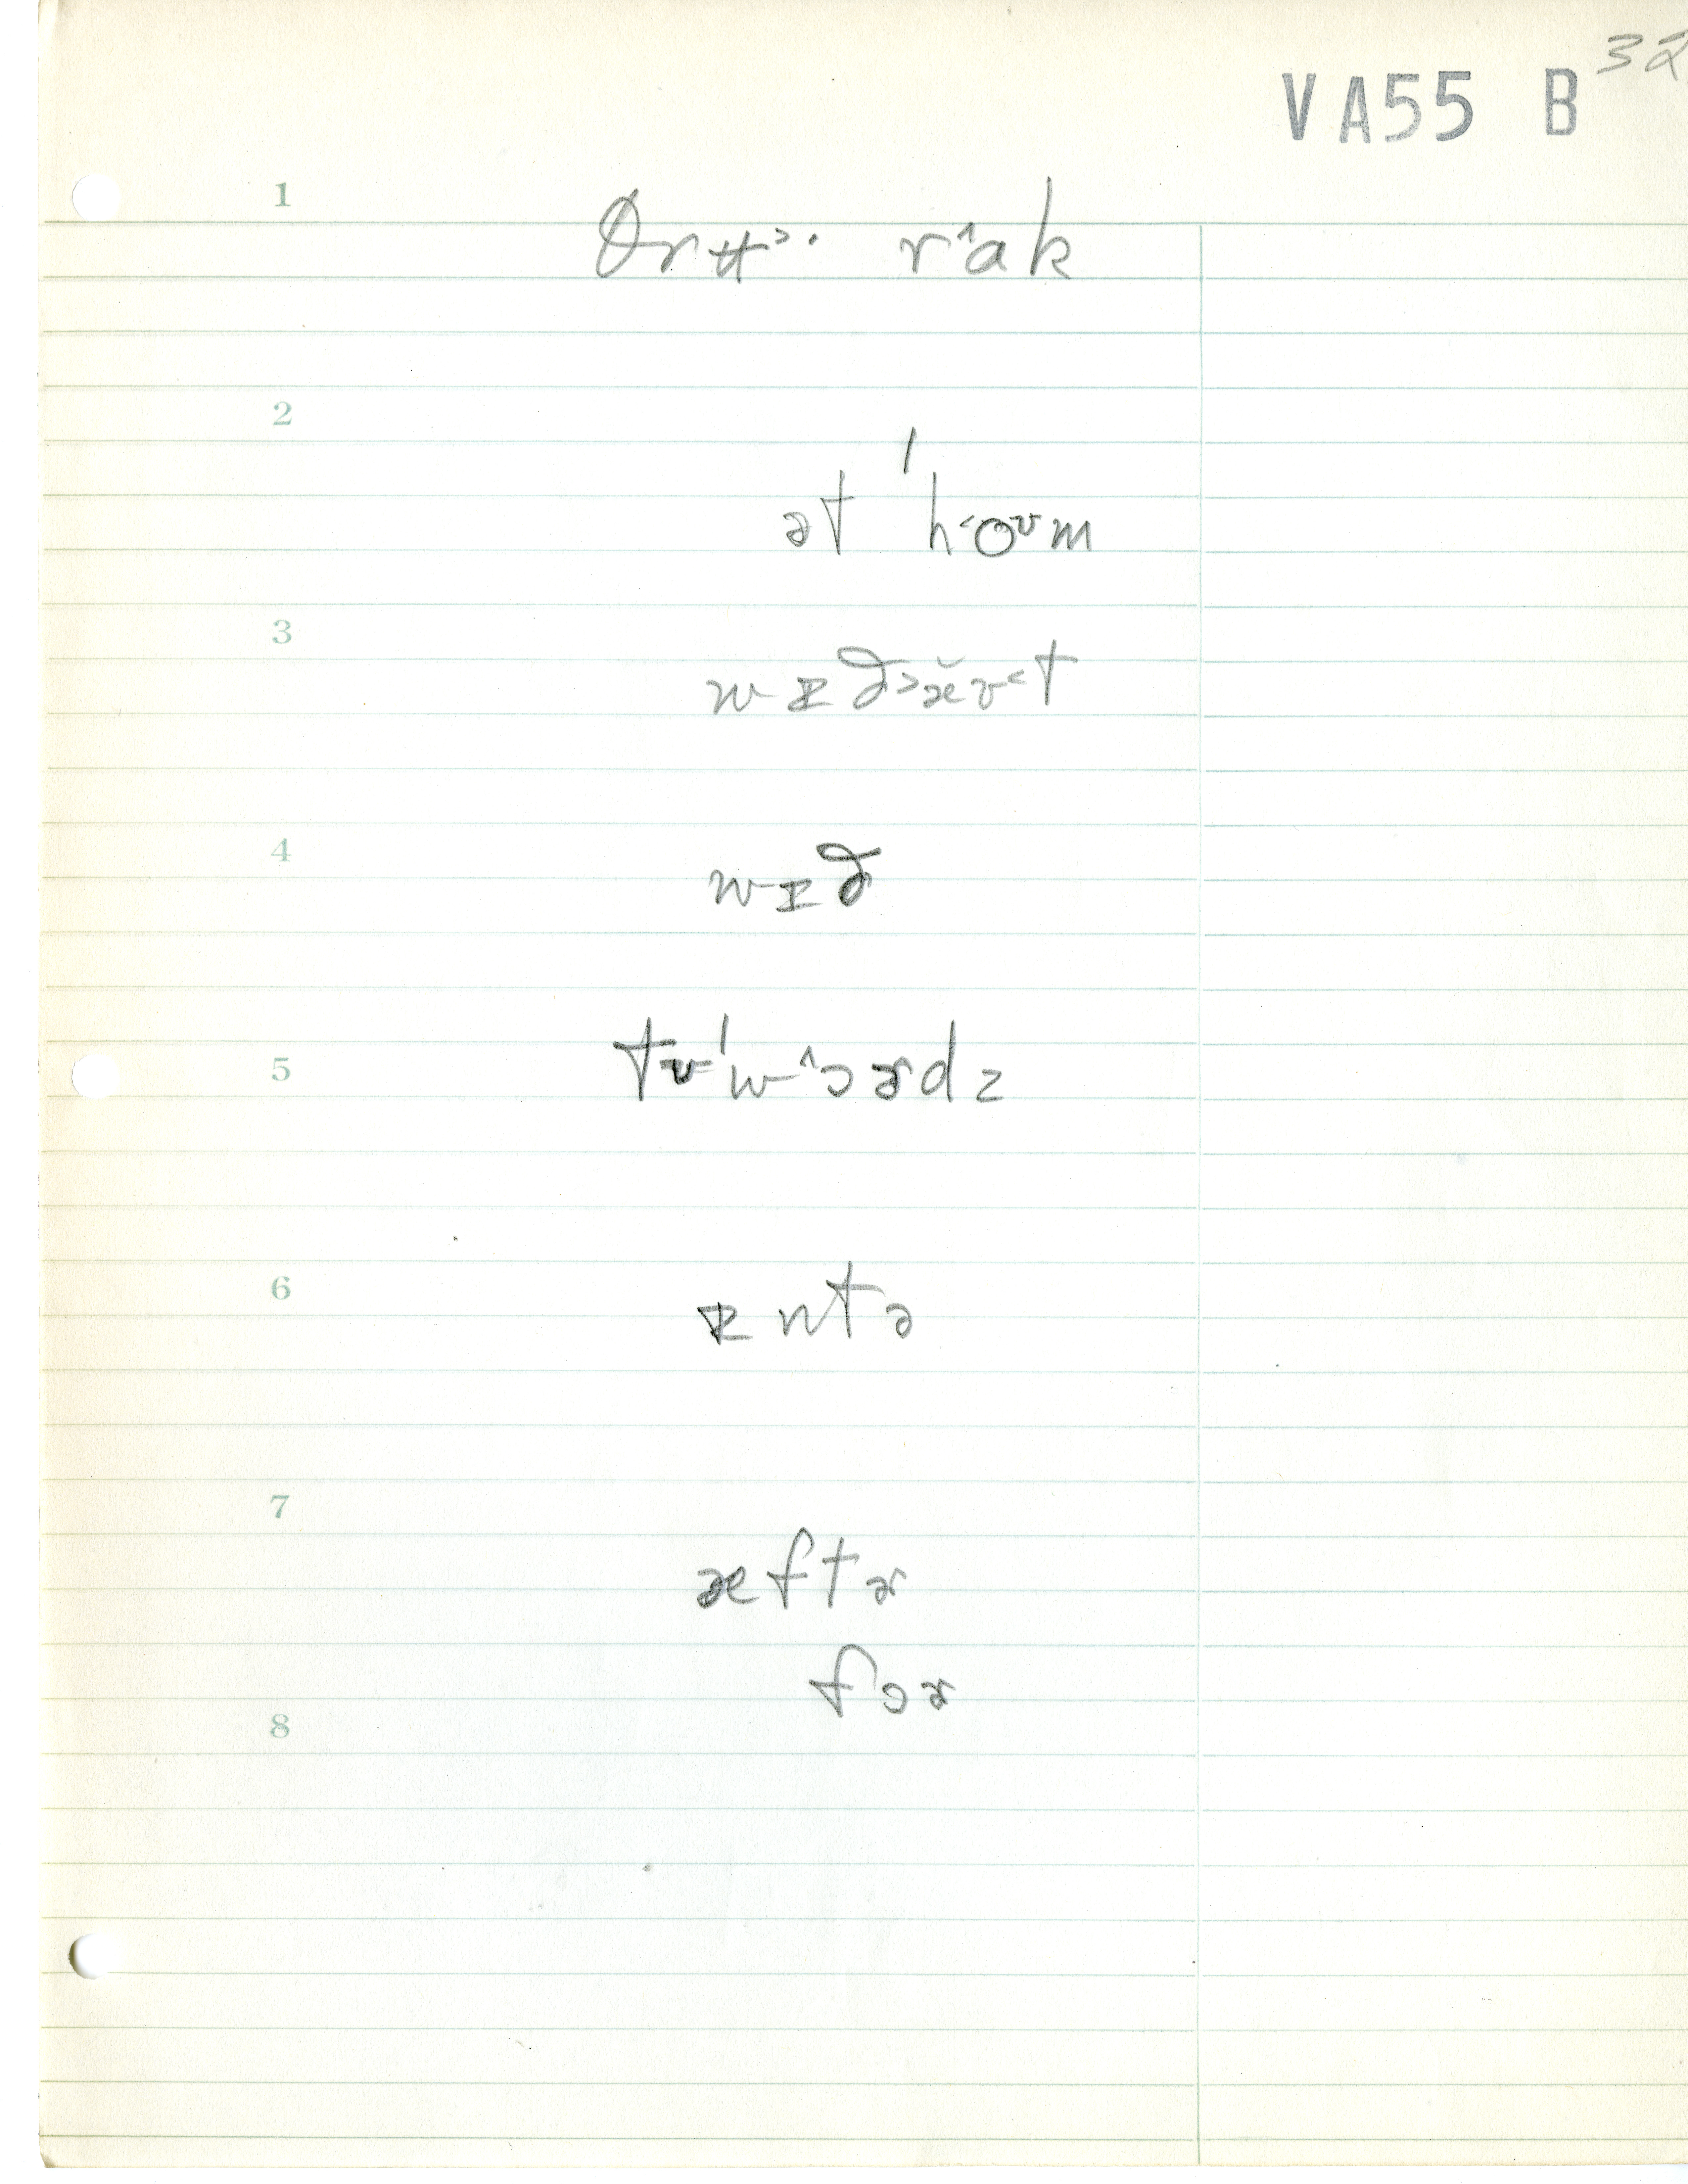 32
VA55 B
1
θrʉ˃· r^ak
2
ət ˈh˂oᶷm
3
wɪð˃æ̆ʊ˂t
4
wɪð
5
tʊˈw^ɔɚdz
6
ɪntə
7
æftɚ
fɔɚ
8